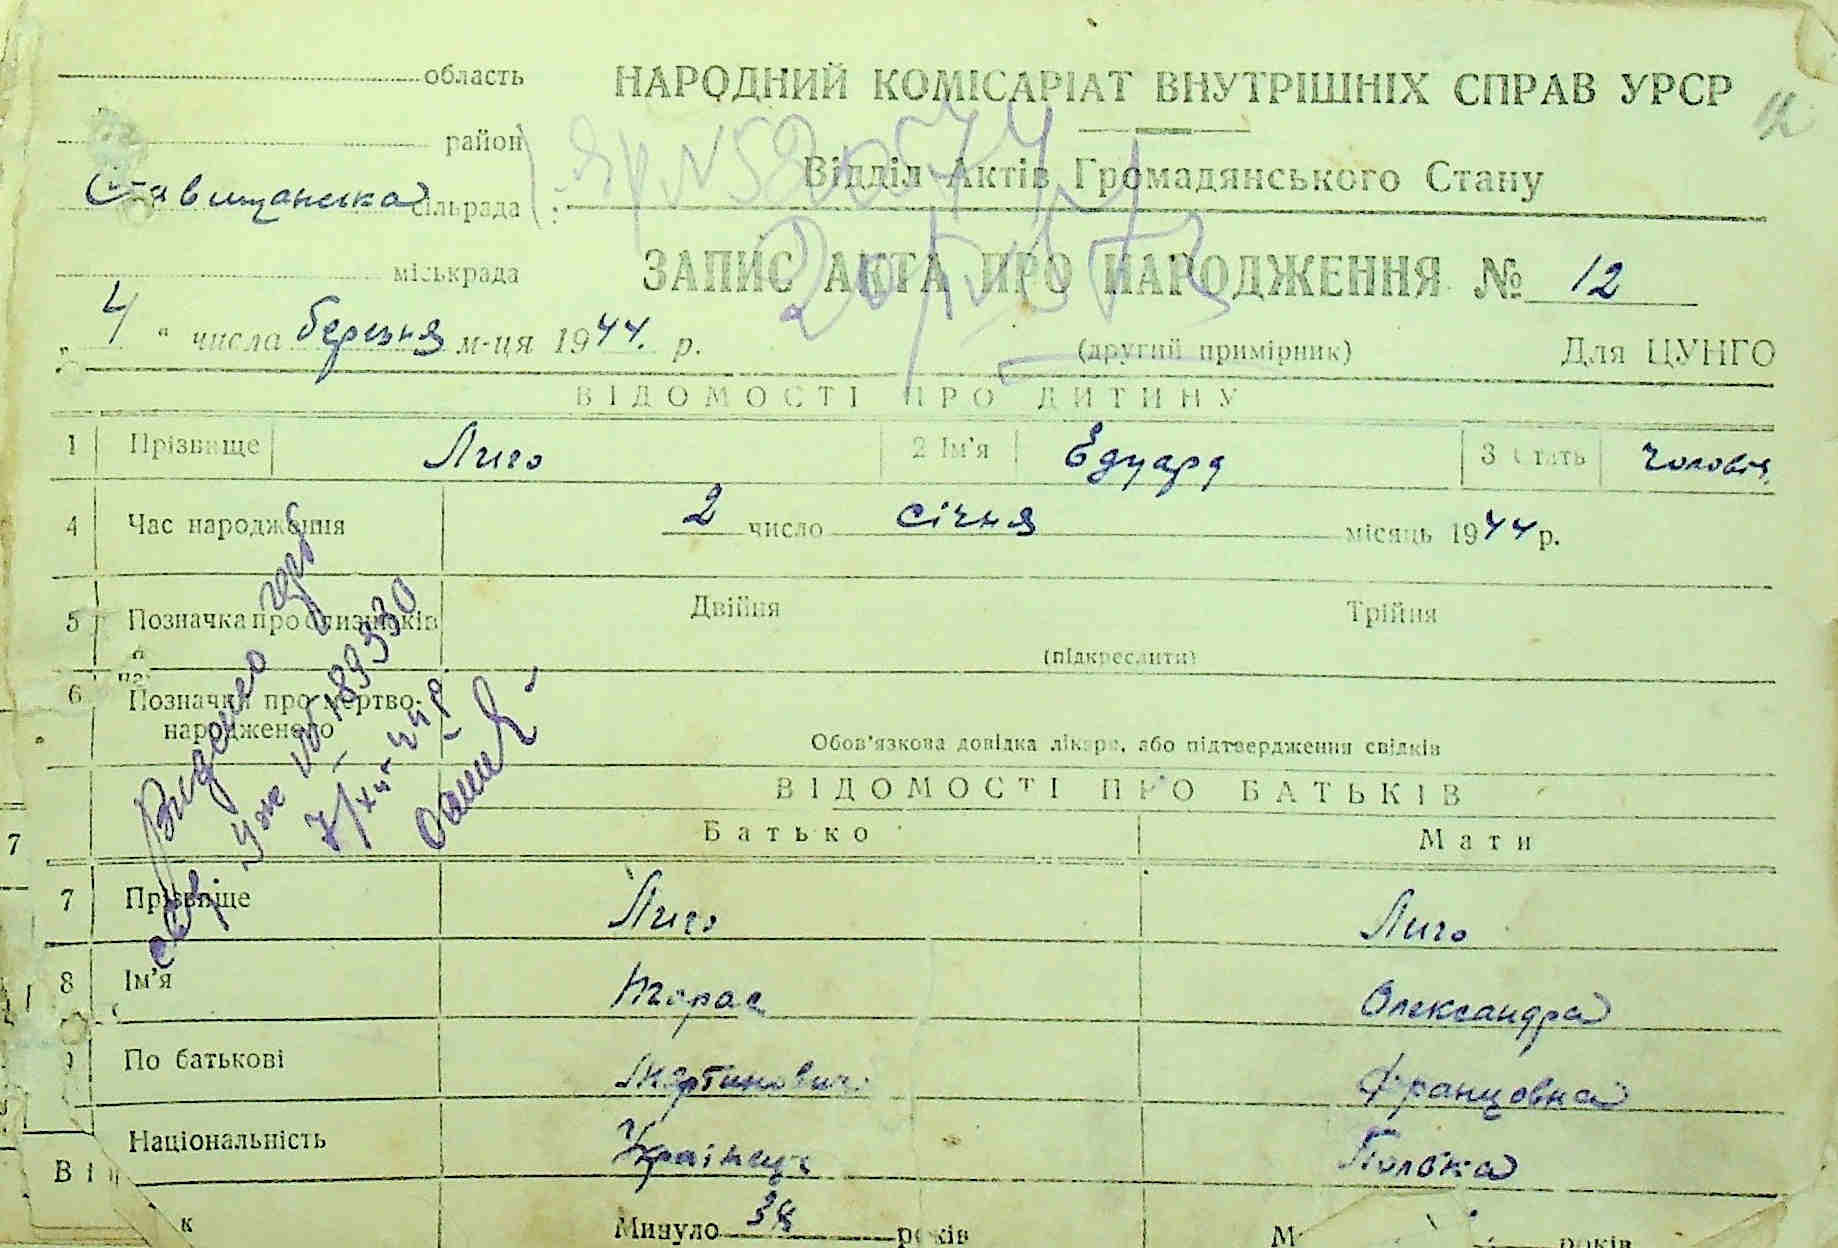 область
НАРОДНИЙ КОМІСАРІАТ ВНУТРІШНІХ СПРАВ УРСР
12
район
Відділ Актів Громадянського Стану
Ставищанська сільрада
міськрада
ЗАПИС АКТА ПРО НАРОДЖЕННЯ № 12
„ 4 " числа березня м-ця 1944. р.
(другий примірник) Для ЦУНГО
ВІДОМОСТІ ПРО ДИТИНУ
1 Прізвище Лиго 2 Ім'я Едуард 3 Стать чоловіч.
4 Час народження 2 число січня місяць 1944 р.
5 Позначка про близнюків Двійня Трійня
(підкреслити)
6 Позначки про мертвонародженого
Обов'язкова довідка лікаря, або підтвердження свідків
Видано
№ 189330
7/XII-44р
ВІДОМОСТІ ПРО БАТЬКІВ
Батько Мати
7
7 Прізвище Лиго Лиго
8 Ім'я Тарас Олександра
По батькові Мартинович Францовна
Національність Українець Полька
ВІ
к Минуло 38 років М років